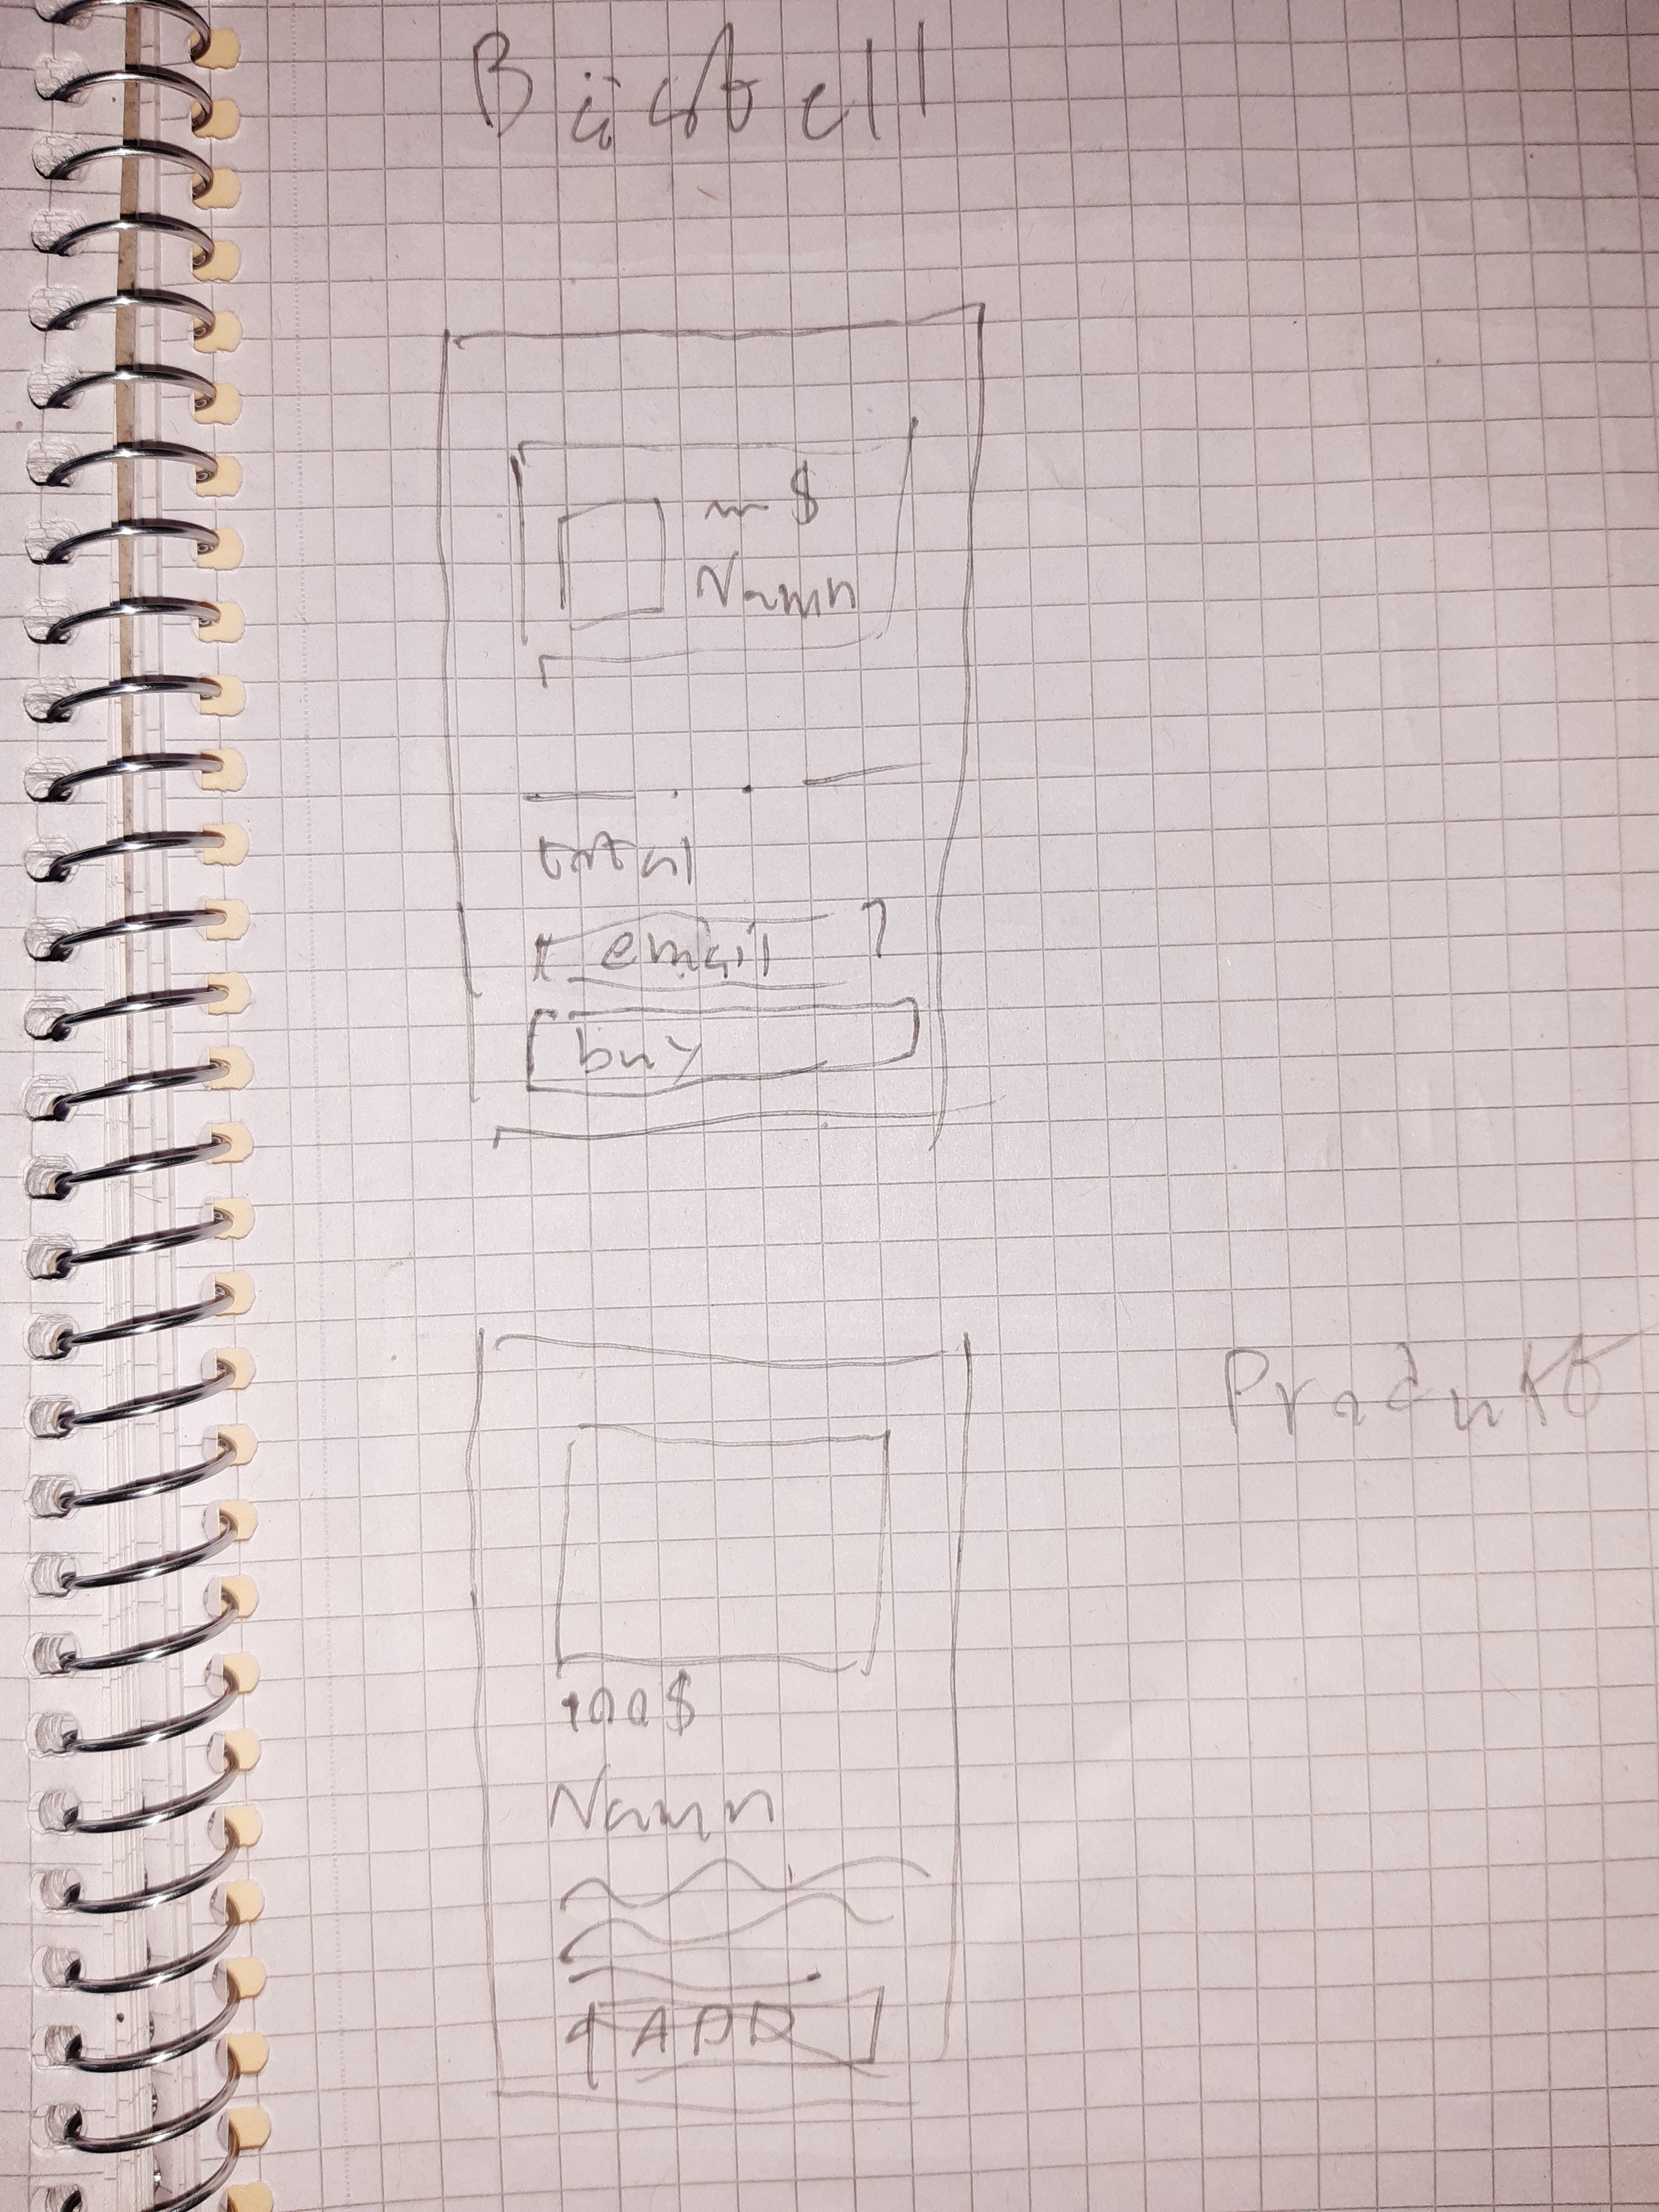 $
Namn
total
email
buy
Produkt
100$
Namn
ADD